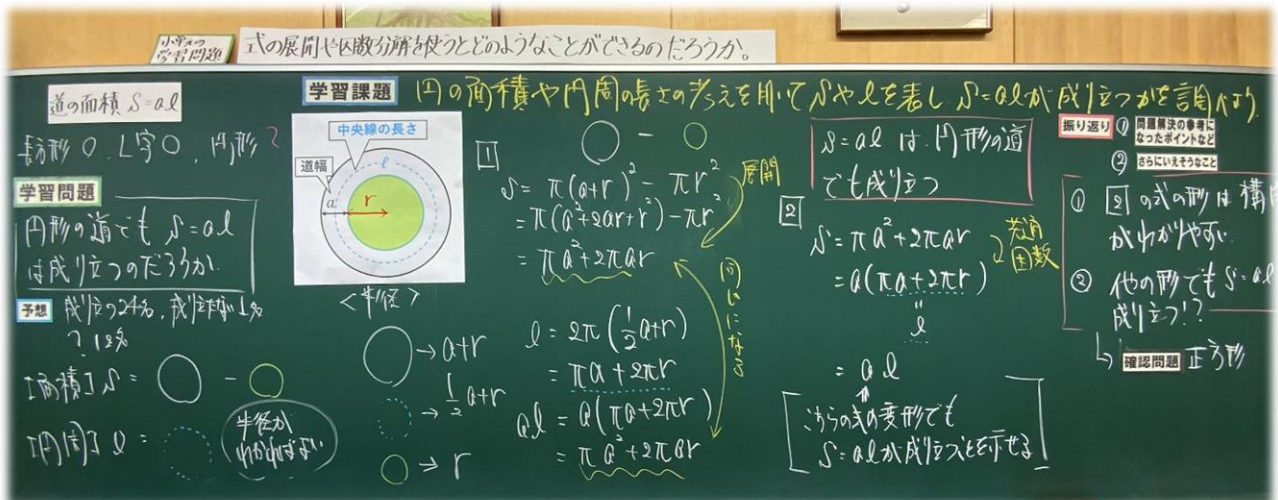 小単元の
学習問題
式の展開や因数分解を使うとどのようなことができるのだろうか。
道の面積 S=aℓ
長方形○, L字○, 円形?
学習問題
円形の道でも S=aℓ
は成り立つのだろうか
予想 成り立つ24名, 成り立たない1名
? 12名
[面積] S = ○ - ○
[円周] ℓ =
半径が
わかればよい
学習課題 円の面積や円周の長さの考えを用いてSやℓを表し, S=aℓが成り立つかを調べよう
中央線の長さ
ℓ
道幅
a
r
<半径>
→ a+r
→ 1/2 a+r
→ r
1
○ - ○
S = π(a+r)² - πr²
= π(a²+2ar+r²) - πr²
= πa²+2πar
展開
ℓ = 2π(1/2 a+r)
= πa+2πr
aℓ = a(πa+2πr)
= πa²+2πar
同じになる
S=aℓ は, 円形の道
でも成り立つ
2
S = πa²+2πar
= a(πa+2πr)
共通因数
〃
ℓ
= aℓ
こちらの式の変形でも
S=aℓが成り立つことを示せる
振り返り
① 問題解決の参考に
なったポイントなど
② さらにいえそうなこと
① 2 の式の形は 構
がわかりやすい
② 他の形でも S=aℓ
成り立つ!?
↳ 確認問題 正方形